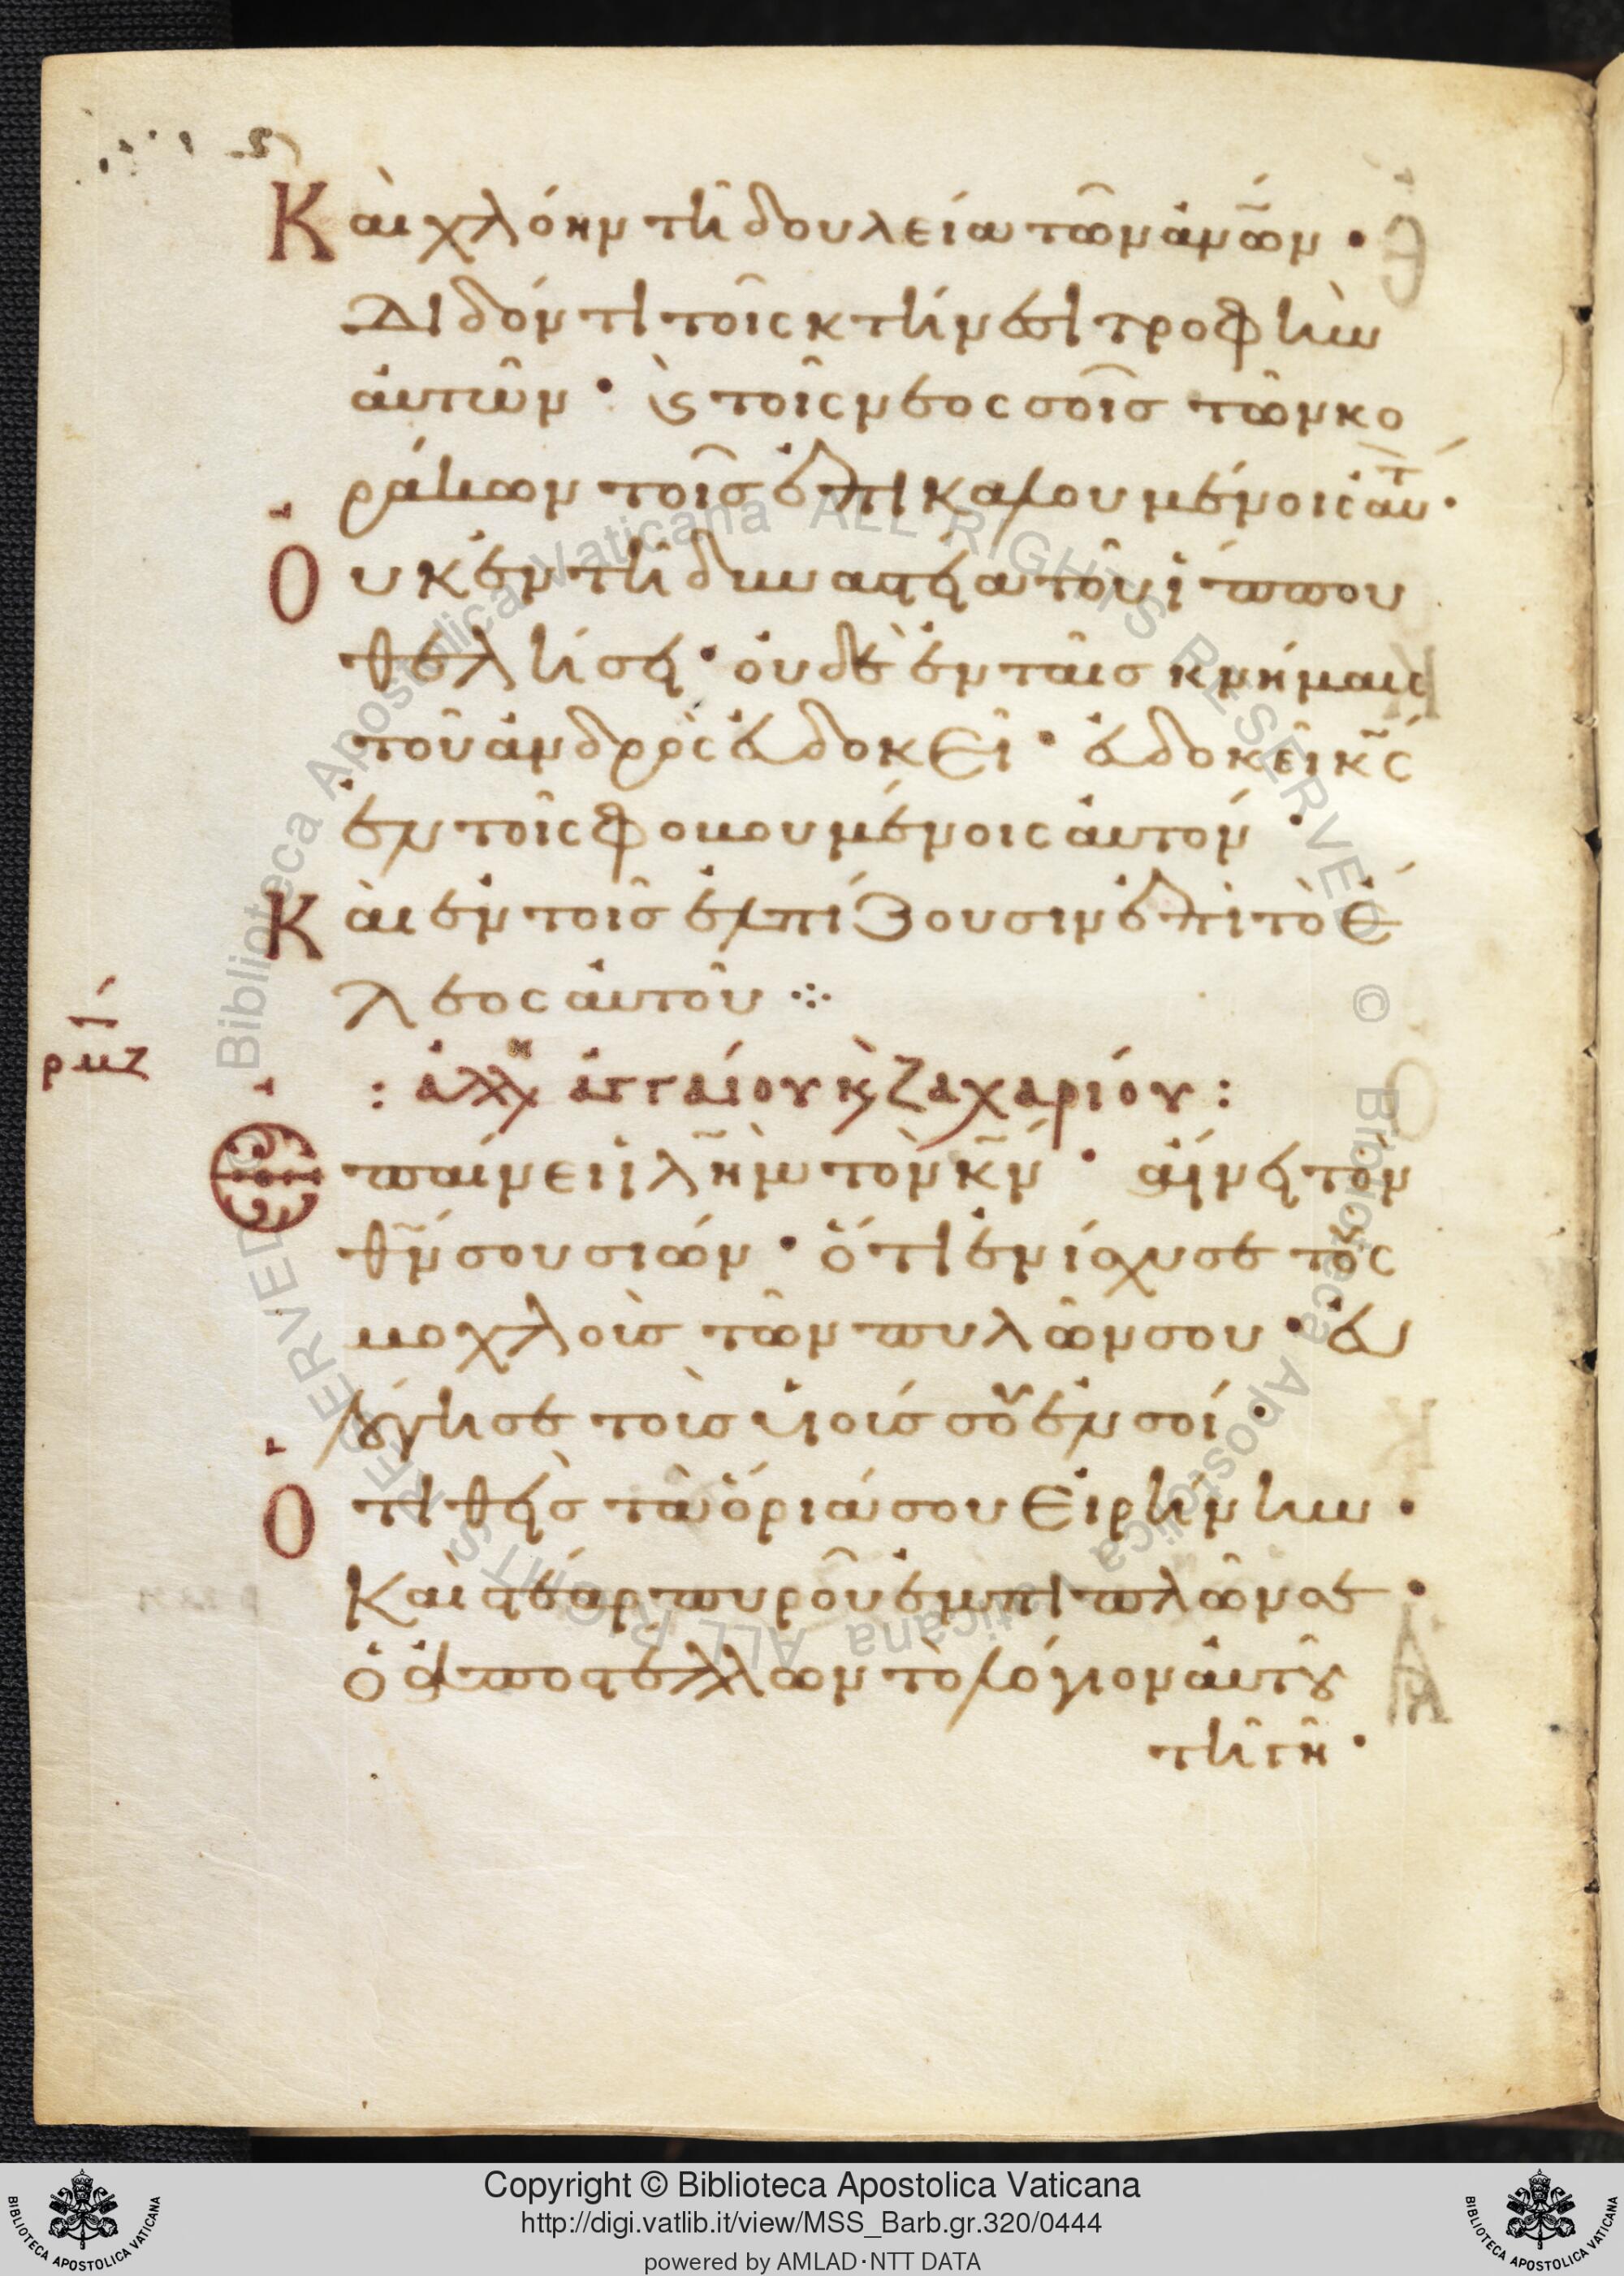 Καὶ χλόην τῆ δουλεία τῶν ἀνῶν ·
Διδόντι τοῖς κτήνεσι τροφὴν
ἀυτῶν · ϗ τοῖς νεοσσοῖσ τῶν κο
ράκων τοῖσ ἐπικαλουμένοις ἀυτ ·
Ουκ ἐν τῆ δυναστεία τοῦ ἵππου
θελήσει · ουδὲ ἐν ταῖσ κνήμαις
τοῦ ἀνδρὸς ἐυδοκεῖ · ἐυδοκεῖ κς
ἐν τοῖς φοβουμένοις ἀυτον ·
Κὰι ἐν τοῖσ ἐλπίζουσιν ἐπὶ τὸ ἔ
λεος ἀυτοῦ ⁘
ρμζ
: ἀλλη ἀγγαίου ϗ ζαχαρίου :
Επαίνει ϊλημ τὸν κν · αἴνει τὸν
θν σου σιών · ὅτι ἐνίσχυσε τοὺς
μοχλοὺσ τῶν πυλῶν σου · ἐυ
λόγησε τοὺσ υἱούσ σου ἐν σοί ·
Ο τιθεὶσ τὰ ὅριά σου εἰρήνην ·
Καὶ στέαρ πυροῦ ἐμπιπλῶν σε ·
ὁ ἀποστέλλων τὸ λόγιον ἀυτοῦ
τῆ γῆ ·
Copyright © Biblioteca Apostolica Vaticana
http://digi.vatlib.it/view/MSS_Barb.gr.320/0444
powered by AMLAD·NTT DATA
BIBLIOTECA APOSTOLICA VATICANA
BIBLIOTECA APOSTOLICA VATICANA
Biblioteca Apostolica Vaticana ALL RIGHTS RESERVED ©
Biblioteca Apostolica Vaticana ALL RIGHTS RESERVED ©